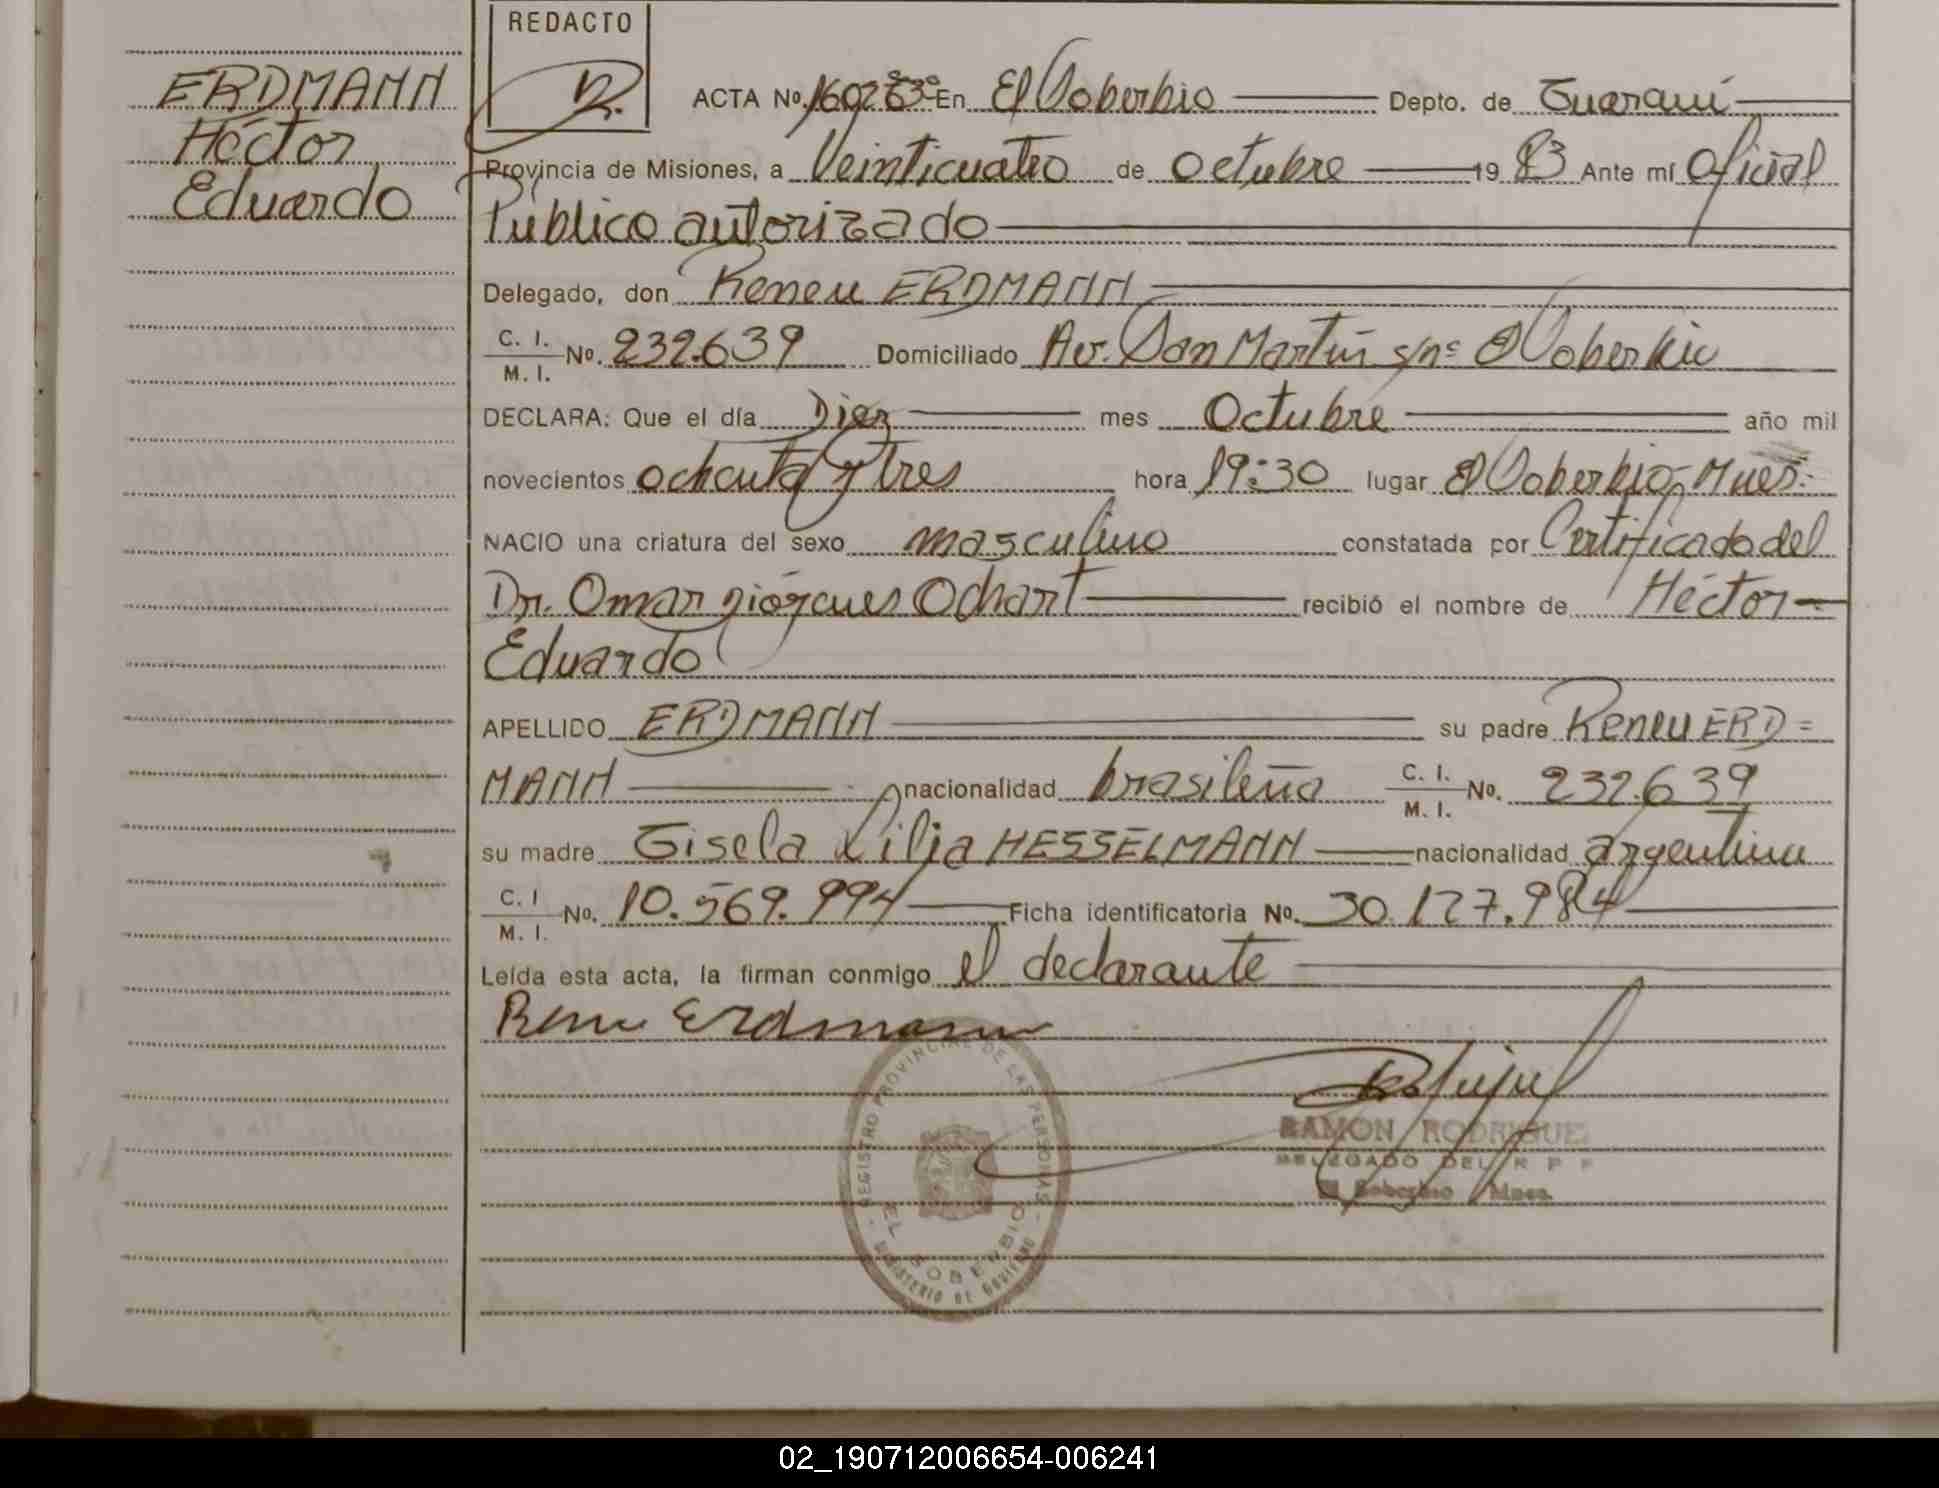 ERDMANN
Héctor
Eduardo
REDACTO
ACTA Nº En El Soberbio Depto. de Guaraní
Provincia de Misiones, a Veinticuatro de Octubre 19 83 Ante mí Oficial
Público autorizado
Delegado, don Reneu ERDMANN
C. I.
M. I. Nº. 232.639 Domiciliado Av. San Martín s/nº El Soberbio
DECLARA: Que el día Diez mes Octubre año mil
novecientos ochenta y tres hora 19:30 lugar El Soberbio, Mnes.
NACIO una criatura del sexo masculino constatada por Certificado del
Dr. Omar Ochart recibió el nombre de Héctor
Eduardo
APELLIDO ERDMANN su padre Reneu ERD=
MANN nacionalidad brasileña C. I.
M. I. Nº. 232.639
su madre Gisela Lilia HESSELMANN nacionalidad argentina
C. I
M. I. Nº. 10.569.994 Ficha identificatoria Nº. 30.127.984
Leída esta acta, la firman conmigo el declarante
Reneu Erdmann
REGISTRO PROVINCIAL DE LAS PERSONAS
EL SOBERBIO
MINISTERIO DE GOBIERNO
RAMON RODRIGUEZ
DELEGADO DEL R P P
El Soberbio Mnes.
02_190712006654-006241